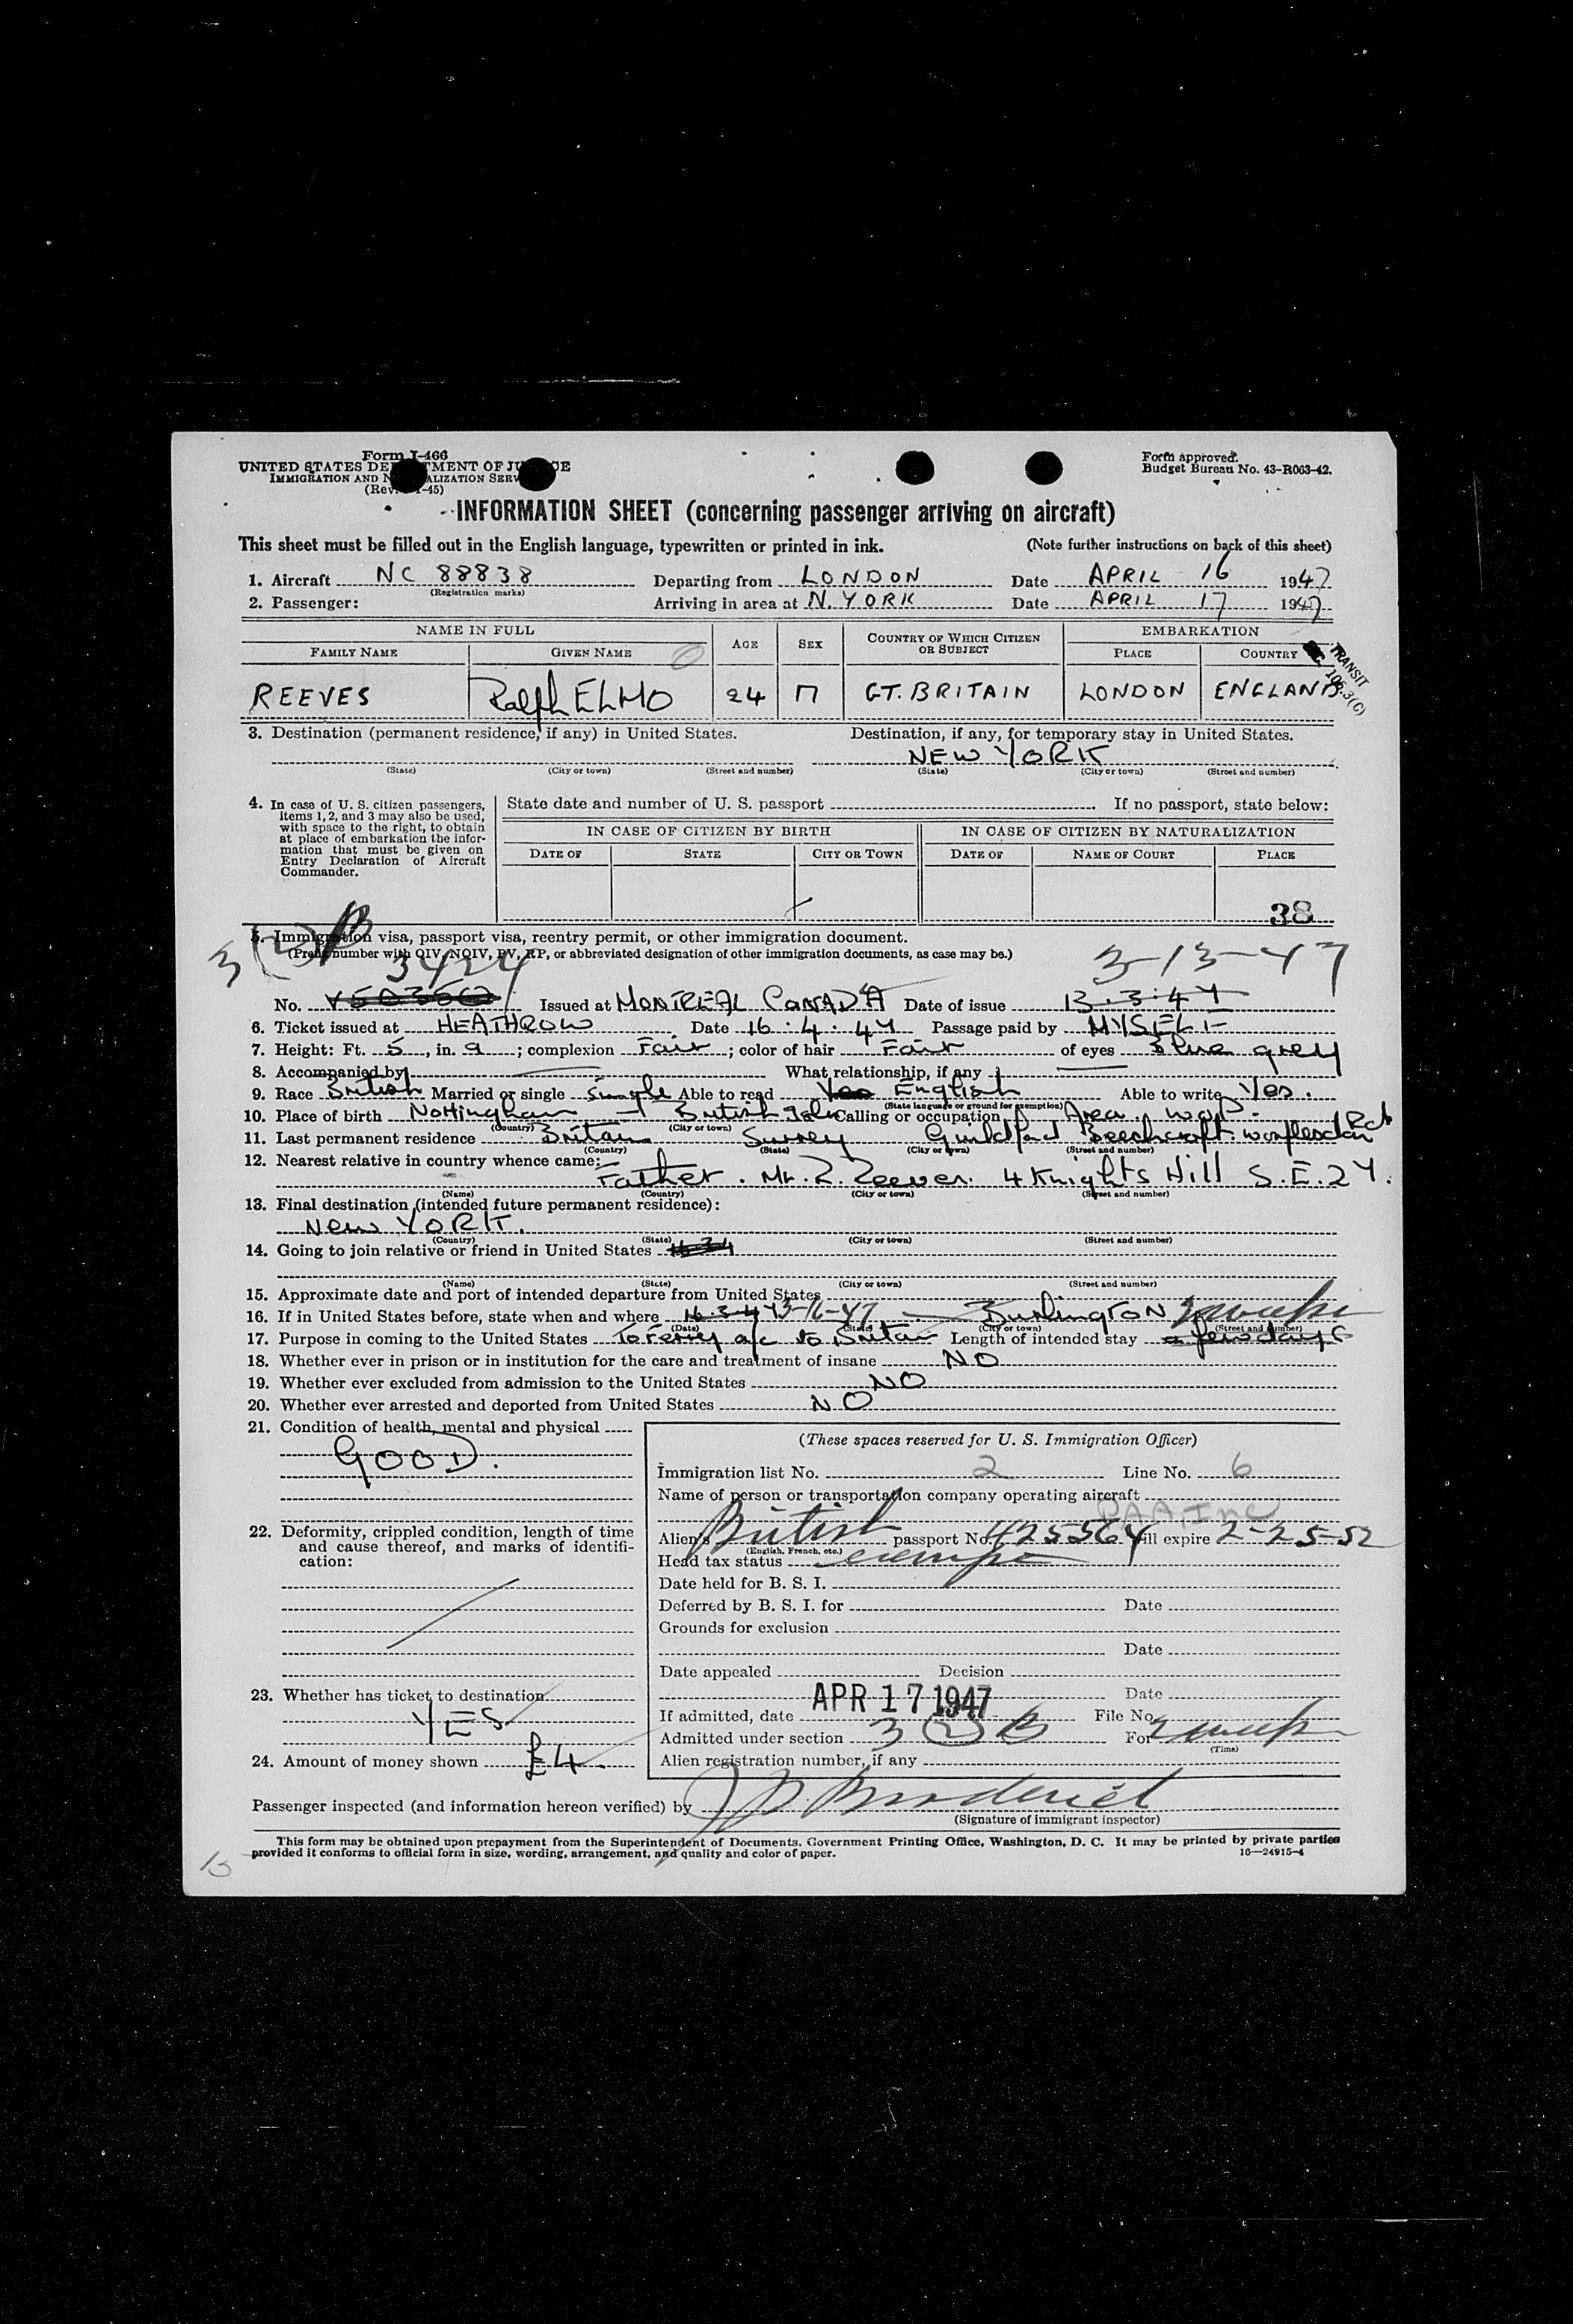 Form I-466
UNITED STATES DE TMENT OF JU CE
IMMIGRATION AND N ALIZATION SERV
(Rev. -45)
Form approved.
Budget Bureau No. 43-R063-42.
INFORMATION SHEET (concerning passenger arriving on aircraft)
This sheet must be filled out in the English language, typewritten or printed in ink. (Note further instructions on back of this sheet)
1. Aircraft NC 88838 Departing from LONDON Date APRIL 16 1947
(Registration marks)
2. Passenger: Arriving in area at N. YORK Date APRIL 17 1947
NAME IN FULL AGE SEX COUNTRY OF WHICH CITIZEN OR SUBJECT EMBARKATION
FAMILY NAME GIVEN NAME PLACE COUNTRY
TRANSIT
105.3(C)
REEVES Ralph ELMO 24 M GT. BRITAIN LONDON ENGLAND
3. Destination (permanent residence, if any) in United States. Destination, if any, for temporary stay in United States.
NEW YORK
(State) (City or town) (Street and number) (State) (City or town) (Street and number)
4. In case of U. S. citizen passengers, items 1, 2, and 3 may also be used, with space to the right, to obtain at place of embarkation the information that must be given on Entry Declaration of Aircraft Commander.
State date and number of U. S. passport If no passport, state below:
IN CASE OF CITIZEN BY BIRTH IN CASE OF CITIZEN BY NATURALIZATION
DATE OF STATE CITY OR TOWN DATE OF NAME OF COURT PLACE
38
5. Immigration visa, passport visa, reentry permit, or other immigration document.
(Prefix number with QIV, NQIV, PV, RP, or abbreviated designation of other immigration documents, as case may be.)
3(2)B 3424 3-13-47
No. Issued at MONTREAL CANADA Date of issue 13.3.47
6. Ticket issued at HEATHROW Date 16.4.47 Passage paid by MYSELF
7. Height: Ft. 5, in. 9; complexion Fair; color of hair Fair of eyes Blue grey
8. Accompanied by What relationship, if any
9. Race British Married or single Single Able to read Yes English Able to write Yes.
(State language or ground for exemption)
10. Place of birth Nottingham British Isles Calling or occupation
(Country) (City or town)
11. Last permanent residence Britain Surrey Guildford Beechcroft Worplesdon Rd
(Country) (State) (City or town) (Street and number)
12. Nearest relative in country whence came:
Father. Mr. R. Reeves. 4 Knights Hill S.E.27.
(Name) (Country) (City or town) (Street and number)
13. Final destination (intended future permanent residence):
New YORK.
(Country) (State) (City or town) (Street and number)
14. Going to join relative or friend in United States
(Name) (State) (City or town) (Street and number)
15. Approximate date and port of intended departure from United States
16. If in United States before, state when and where 16.3.47 3-16-47 Burlington 2 weeks
(Date) (State) (City or town) (Street and number)
17. Purpose in coming to the United States To Ferry a/c to Britain Length of intended stay a few days
18. Whether ever in prison or in institution for the care and treatment of insane NO
19. Whether ever excluded from admission to the United States NO
20. Whether ever arrested and deported from United States NO
21. Condition of health, mental and physical
GOOD.
22. Deformity, crippled condition, length of time and cause thereof, and marks of identification:
23. Whether has ticket to destination
YES
24. Amount of money shown £4.
(These spaces reserved for U. S. Immigration Officer)
Immigration list No. 2 Line No. 6
Name of person or transportation company operating aircraft
PAA, Inc
Alien's British passport No. 425564 will expire 2-25-52
(English, French, etc.)
Head tax status exempt
Date held for B. S. I.
Deferred by B. S. I. for Date
Grounds for exclusion
Date
Date appealed Decision
Date
If admitted, date APR 17 1947 File No.
Admitted under section 3(2)B For 2 weeks
(Time)
Alien registration number, if any
Passenger inspected (and information hereon verified) by
(Signature of immigrant inspector)
This form may be obtained upon prepayment from the Superintendent of Documents, Government Printing Office, Washington, D. C. It may be printed by private parties
provided it conforms to official form in size, wording, arrangement, and quality and color of paper. 16—24915-4